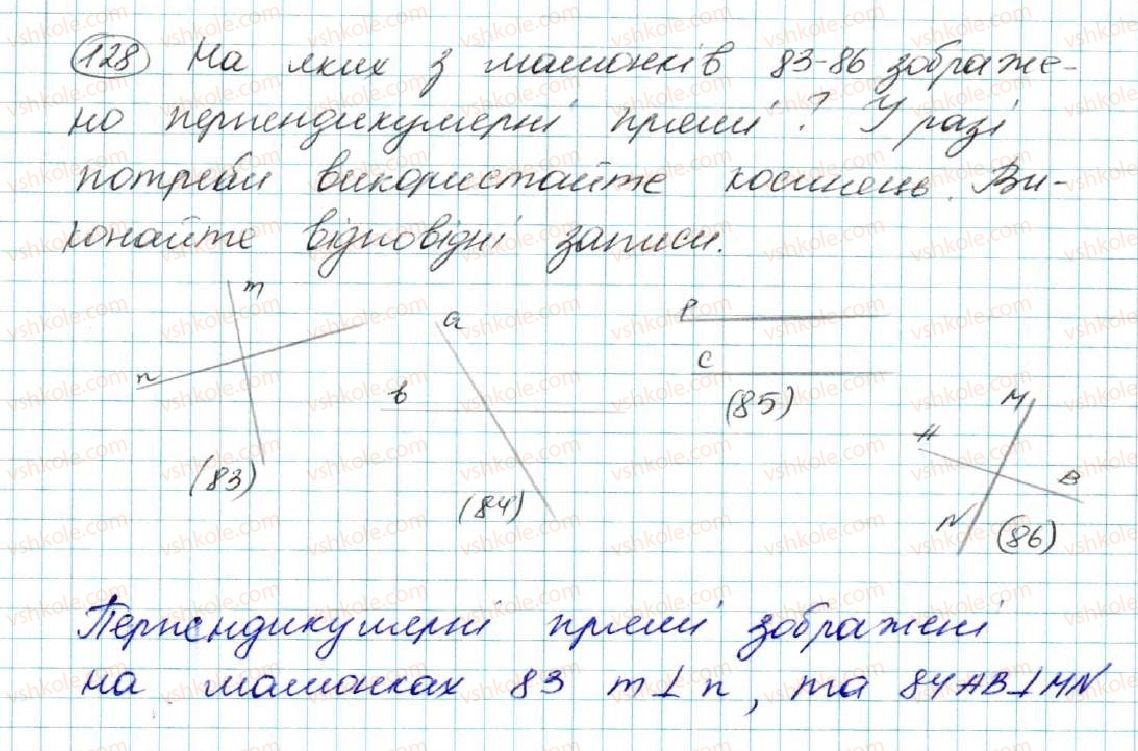 128 На яких з малюнків 83-86 зображе-
но перпендикулярні прямі? У разі
потреби використайте косинець. Ви-
конайте відповідні записи.
m
n
(83)
a
b
(84)
P
C
(85)
M
A
B
N
(86)
Перпендикулярні прямі зображені
на малюнках 83 m⊥n, та 84 AB⊥MN
vshkole.com